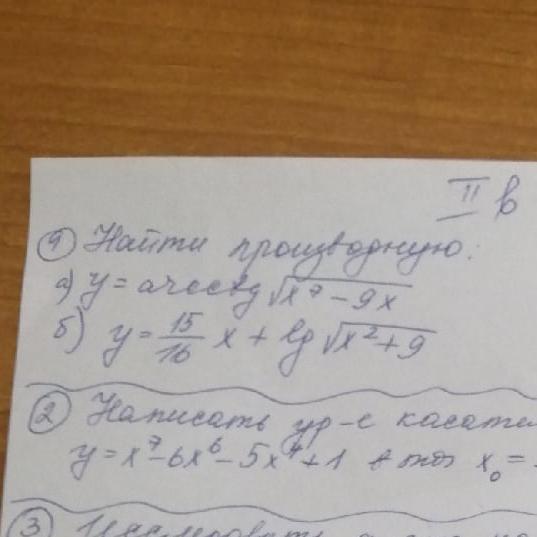 II в
① Найти производную:
а) y = arcctg √(x⁷ - 9x)
б) y = 15/16 x + lg √(x² + 9)
② Написать ур-е касател
y = x⁷ - 6x⁶ - 5x⁴ + 1 в x₀ =
③ Исследовать